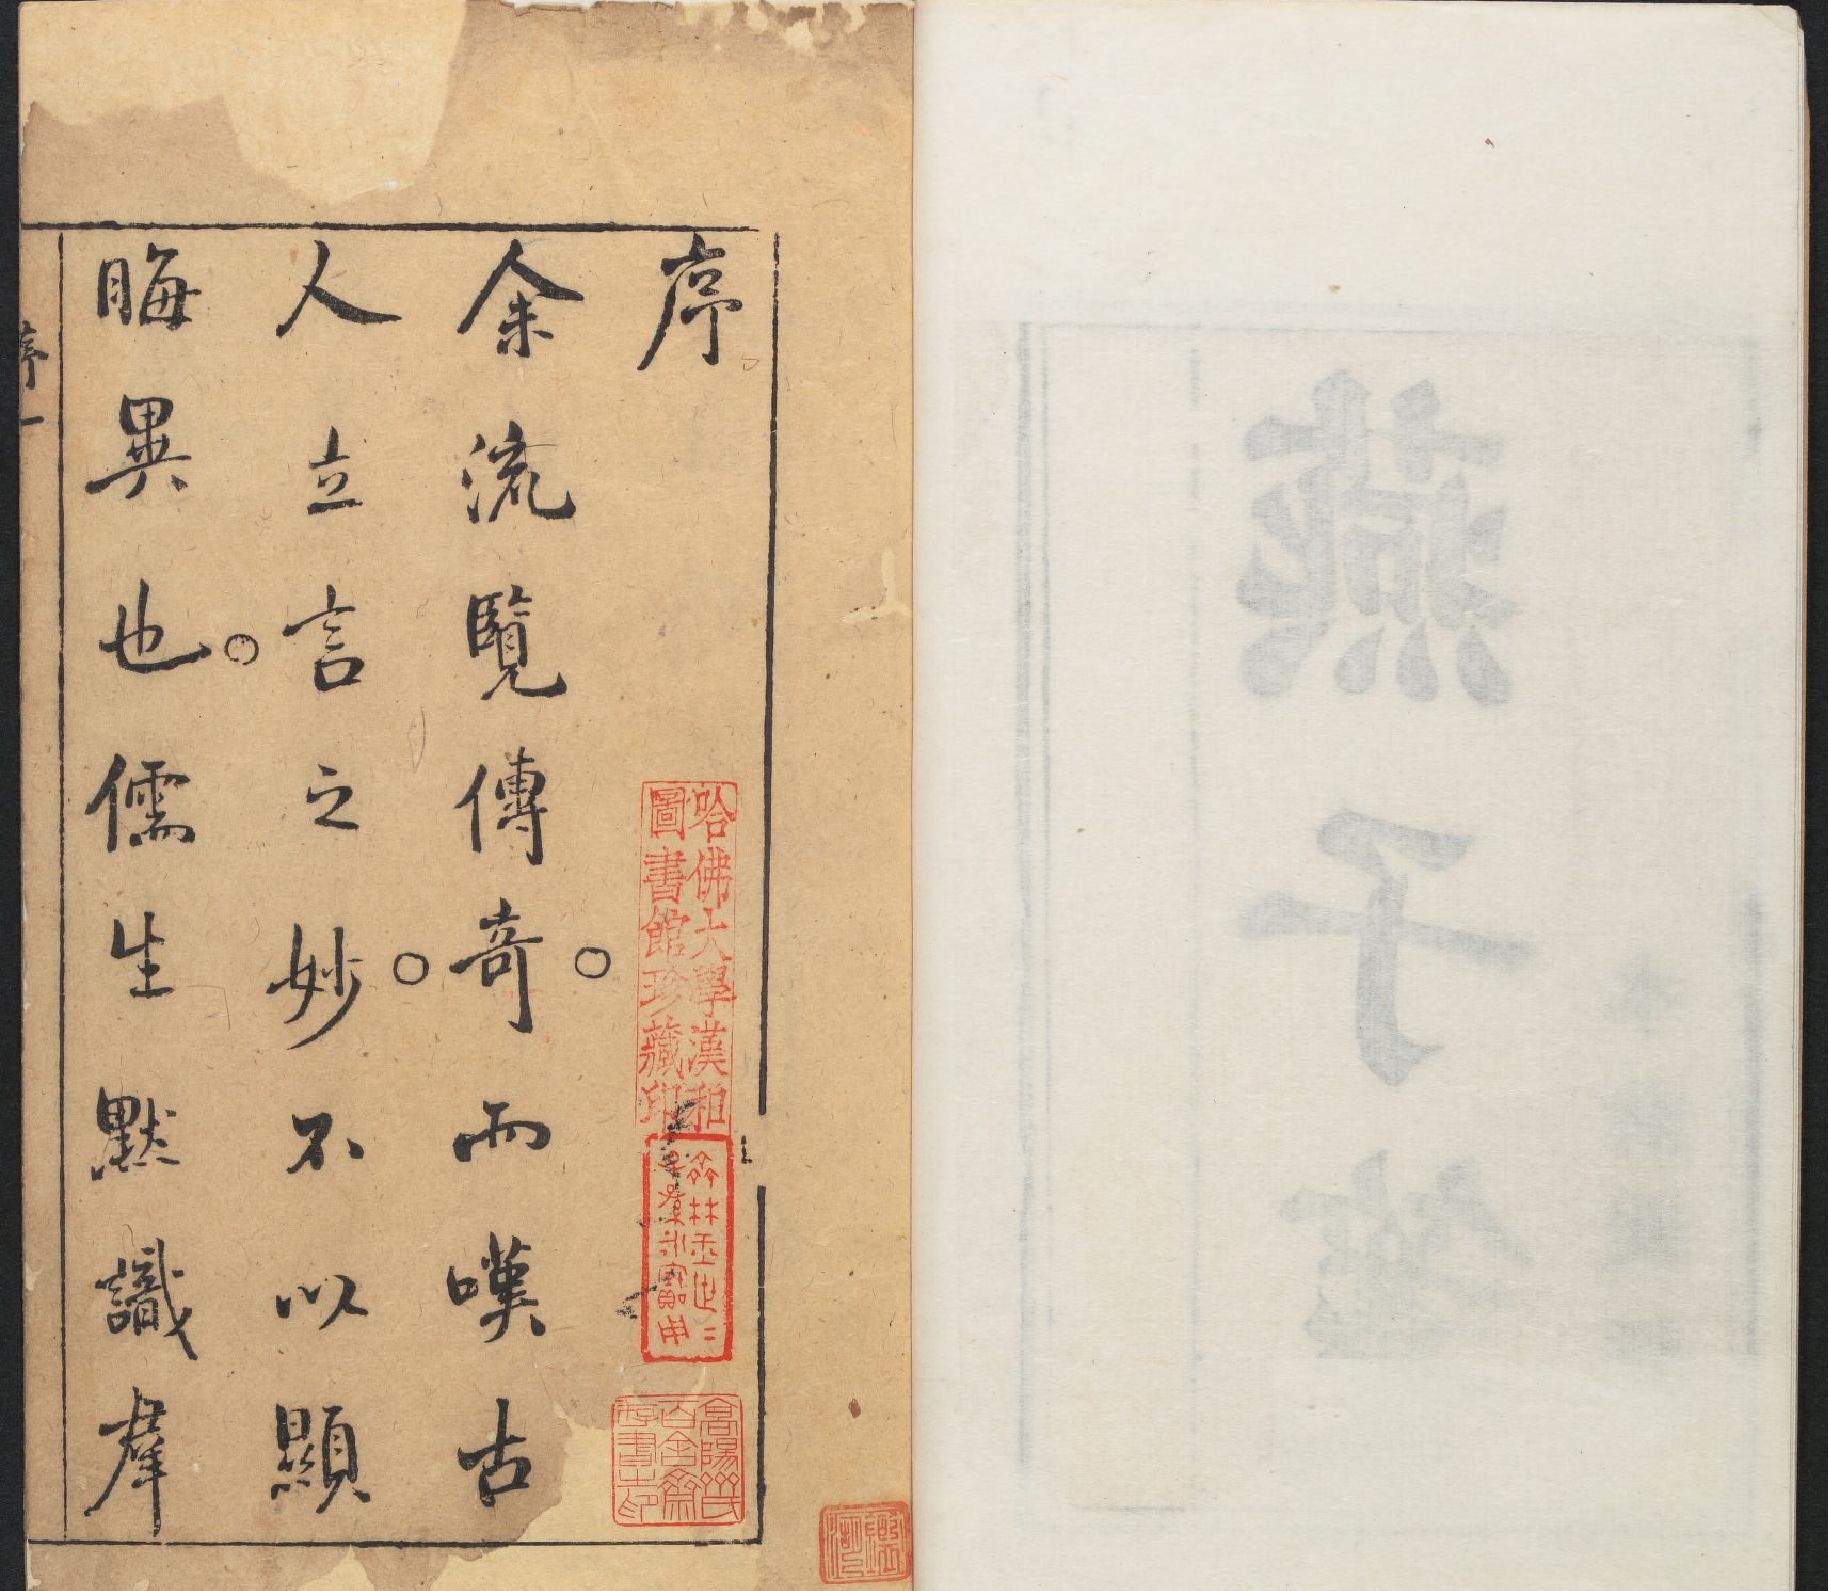 燕子
序
余流覽傳奇。而嘆古
人立言之妙。不以顯
晦異也。儒生默識羣
序一
哈佛大學漢和
圖書館珍藏印